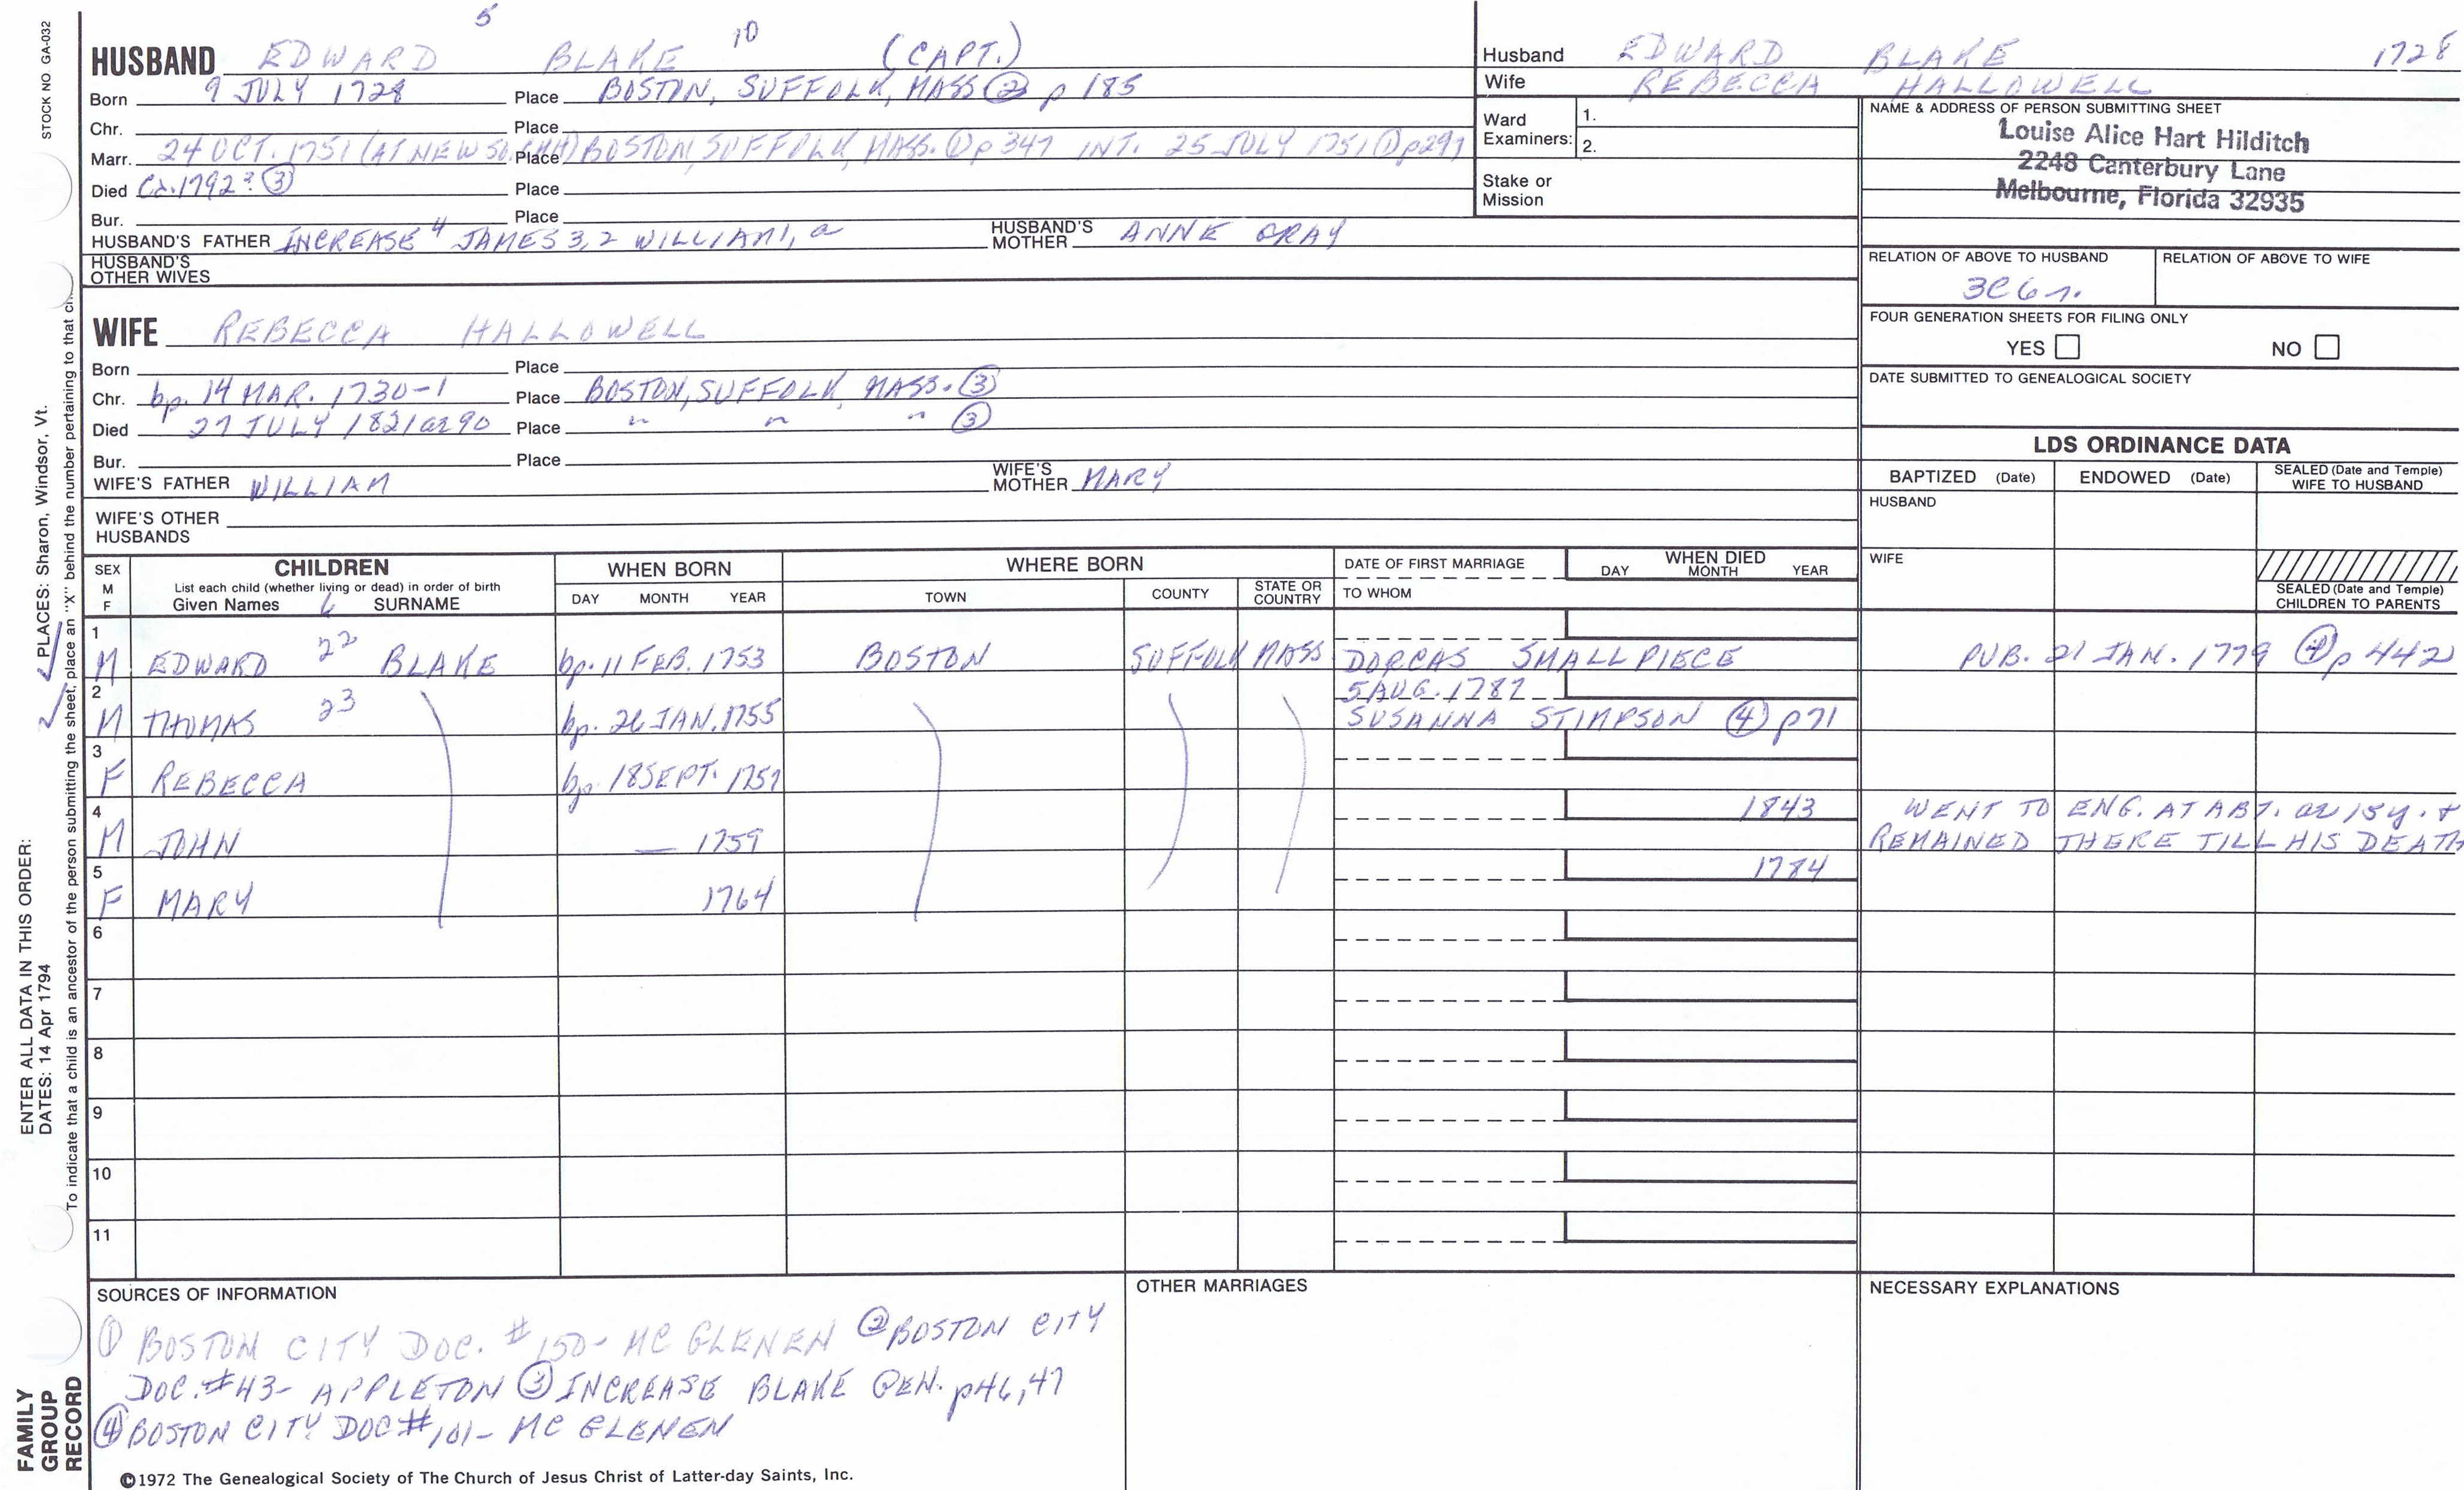 STOCK NO GA-032
5
10
HUSBAND EDWARD BLAKE (CAPT.)
Born 9 JULY 1728 Place BOSTON, SUFFOLK, MASS ② p 185
Chr. Place
Marr. 24 OCT. 1751 (AT NEW SO. CHH) Place BOSTON, SUFFOLK, MASS. ① p 347 INT. 25 JULY 1751 ① p297
Died Ca. 1792? ③ Place
Bur. Place
HUSBAND'S FATHER INCREASE 4 JAMES 3, 2 WILLIAM 1, a HUSBAND'S MOTHER ANNE GRAY
HUSBAND'S OTHER WIVES
WIFE REBECCA HALLOWELL
Born Place
Chr. bp. 14 MAR. 1730-1 Place BOSTON, SUFFOLK, MASS. ③
Died 27 JULY 1821 ae 90 Place " " " ③
Bur. Place
WIFE'S FATHER WILLIAM WIFE'S MOTHER MARY
WIFE'S OTHER HUSBANDS
Husband EDWARD BLAKE 1728
Wife REBECCA HALLOWELL
Ward Examiners: 1.
2.
Stake or Mission
NAME & ADDRESS OF PERSON SUBMITTING SHEET
Louise Alice Hart Hilditch
2248 Canterbury Lane
Melbourne, Florida 32935
RELATION OF ABOVE TO HUSBAND RELATION OF ABOVE TO WIFE
3C 6r.
FOUR GENERATION SHEETS FOR FILING ONLY
YES NO
DATE SUBMITTED TO GENEALOGICAL SOCIETY
LDS ORDINANCE DATA
BAPTIZED (Date) ENDOWED (Date) SEALED (Date and Temple) WIFE TO HUSBAND
HUSBAND
WIFE
SEALED (Date and Temple) CHILDREN TO PARENTS
SEX M F CHILDREN WHEN BORN WHERE BORN DATE OF FIRST MARRIAGE WHEN DIED
List each child (whether living or dead) in order of birth
Given Names 6 SURNAME DAY MONTH YEAR TOWN COUNTY STATE OR COUNTRY TO WHOM DAY MONTH YEAR
1 M EDWARD 22 BLAKE bp. 11 FEB. 1753 BOSTON SUFFOLK MASS DORCAS SMALLPIECE PUB. 21 JAN. 1779 ④ p 442
2 M THOMAS 23 bp. 26 JAN. 1755 5 AUG. 1787 SUSANNA STIMPSON ④ p71
3 F REBECCA bp. 18 SEPT. 1757
4 M JOHN — 1759 1843 WENT TO ENG. AT ABT. ae 15y. + REMAINED THERE TILL HIS DEATH
5 F MARY 1764 1784
6
7
8
9
10
11
SOURCES OF INFORMATION
① BOSTON CITY DOC. #150- MC GLENEN ② BOSTON CITY
DOC. #43- APPLETON ③ INCREASE BLAKE GEN. p46,47
④ BOSTON CITY DOC #101- MC GLENEN
OTHER MARRIAGES
NECESSARY EXPLANATIONS
©1972 The Genealogical Society of The Church of Jesus Christ of Latter-day Saints, Inc.
ENTER ALL DATA IN THIS ORDER:
DATES: 14 Apr 1794 PLACES: Sharon, Windsor, Vt.
To indicate that a child is an ancestor of the person submitting the sheet, place an "X" behind the number pertaining to that
FAMILY
GROUP
RECORD